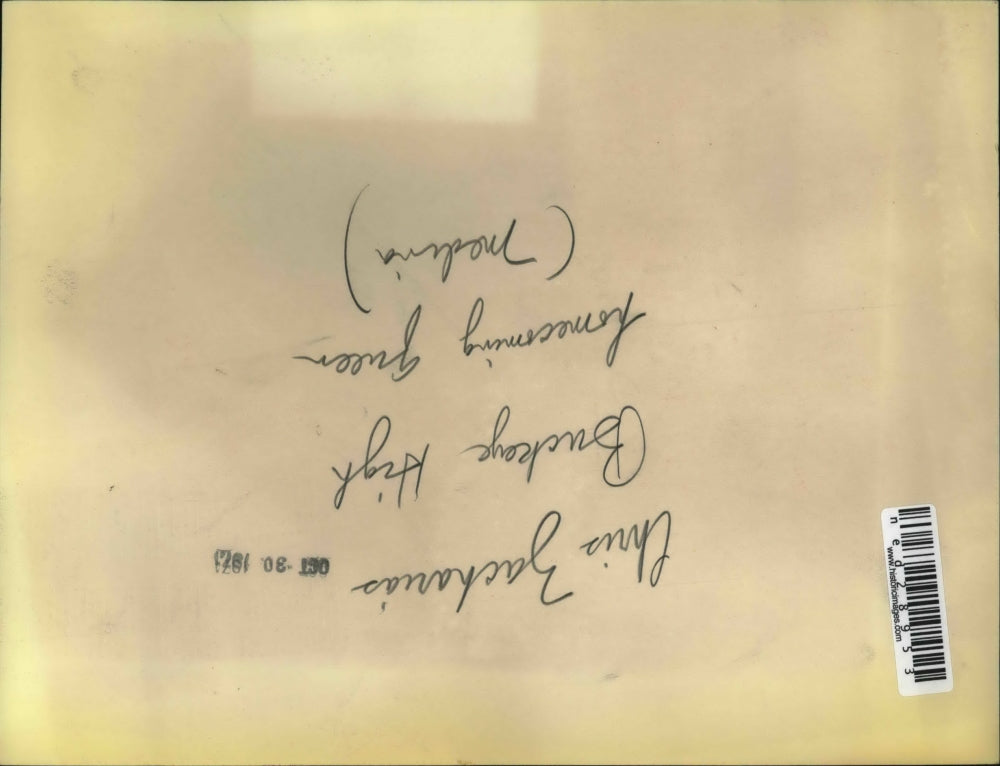 Chris Zacharias
OCT 30 1971
Buckeye High
homecoming Queen
(Medina)
ned28953
www.historicimages.com